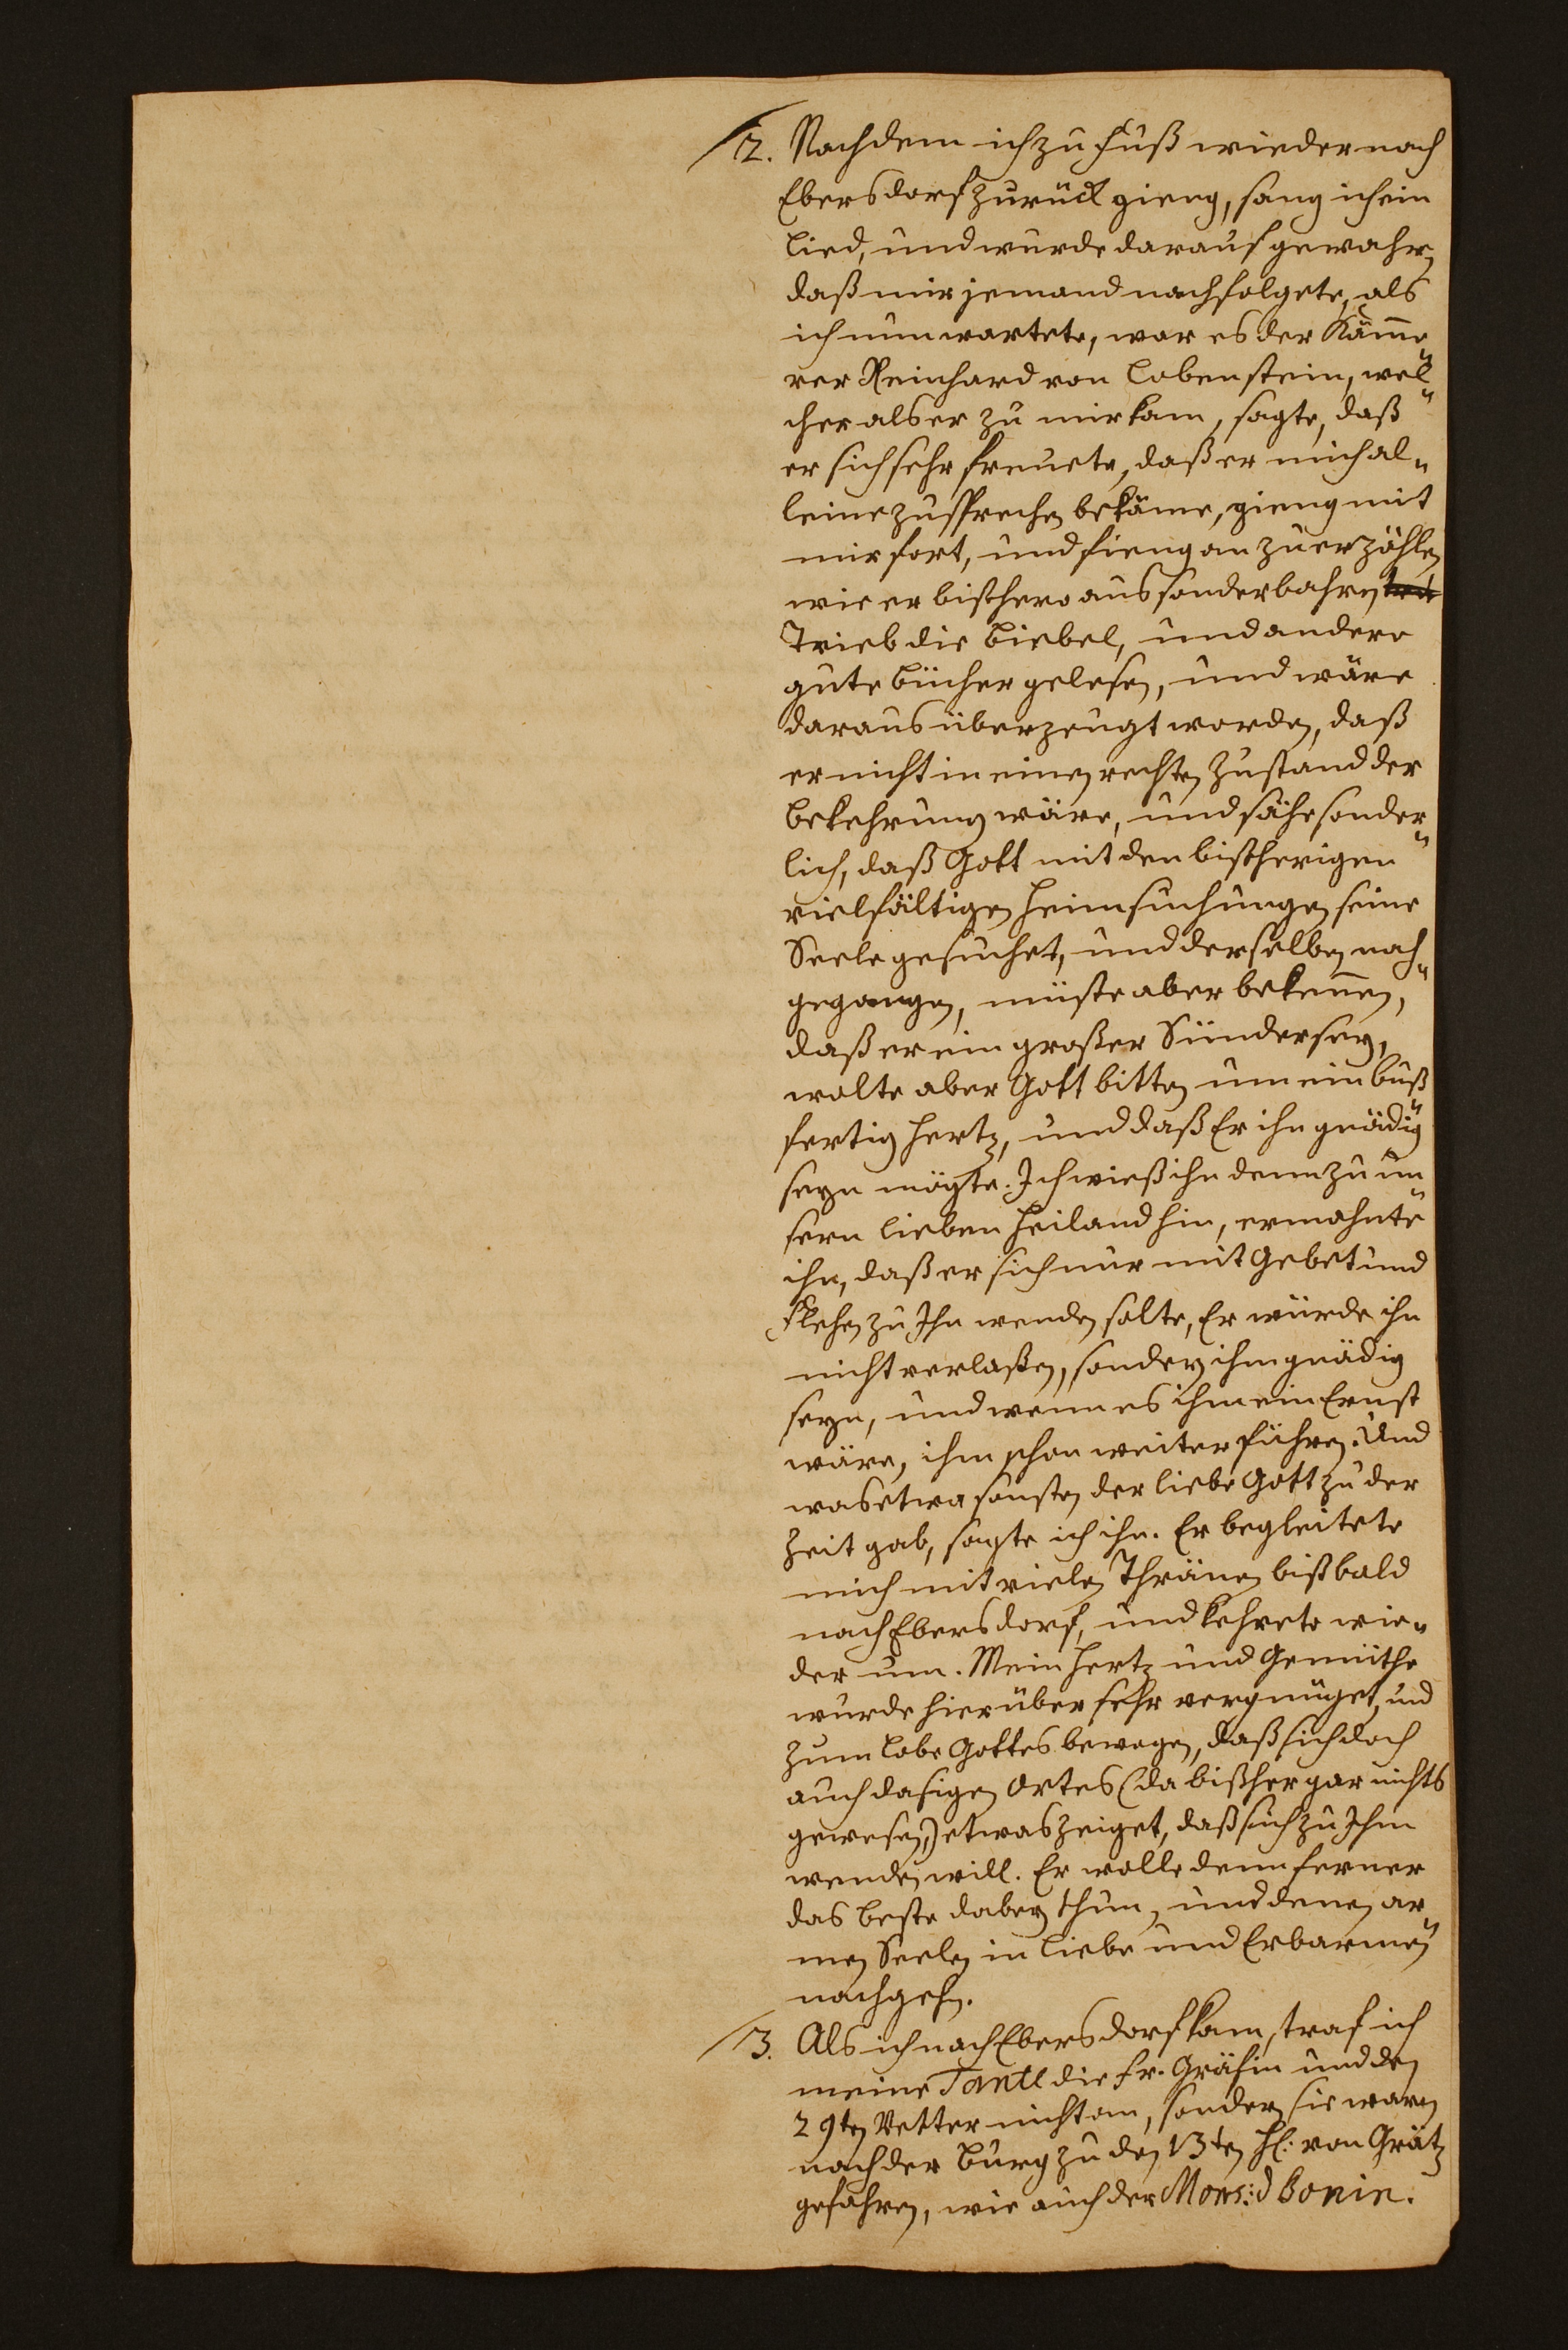 2. Nachdem ich zu Fuß wieder nach
Ebersdorf zurück gieng, sang ich ein
Lied, und wurde darauf gewahr,
daß mir jemand nachfolgete, als
ich nun wartete, war es der Kam̃e
rer Reinhard von Lobenstein, wel„
cher als er zu mir kam, sagte, daß
er sich sehr freuete, daß er mich al„
leine zu sprechen bekäme, gieng mit
mir fort, und fieng an zu erzählen
wie er bißhero aus sonderbahren
Trieb die Biebel, und andere
gute Bücher gelesen, und wäre
daraus überzeugt worden, daß
er nicht in einen rechten Zustand der
Bekehrung wäre, und sähe sonder„
lich, daß Gott mit den bißherigen
vielfältigen Heimsuchungen seine
Seele gesuchet, und derselben nach„
gegangen, müste aber beken̄en,
daß er ein großer Sünder sey,
wolte aber Gott bitten um ein buß„
fertig Hertz, und daß Er ihn gnädig
seyn mögte. Ich wieß ihn denn zu un„
sern lieben Heiland hin, ermahnte
ihn, daß er sich nur mit Gebet und
Flehen zu Ihn wenden solte, Er würde ihn
nicht verlaßen, sondern ihm gnädig
seyn, und wenn es ihm ein Ernst
wäre, ihm schon weiter führen. Und
was etwa sonsten der liebe Gott zu der
Zeit gab, sagte ich ihn. Er begleitete
mich mit vielen Thränen biß bald
nach Ebersdorf, und kehrete wie„
der um. Mein Hertz und Gemüthe
wurde hierüber sehr vergnüget, und
zum Lobe Gottes bewogen, daß sich doch
auch dasigen Ortes (da bißher gar nichts
gewesen,) etwas zeiget, daß sich zu Ihm
wenden will. Er wolle denn ferner
das beste dabey thun, und denen ar„
men Seelen in Liebe und Erbarmen
nachgehen.
3. Als ich nach Ebersdorf kam, traf ich
meine Tante die Fr. Gräfin und den
29ten Vetter nicht an, sondern sie waren
nach der Burg zu den 13ten H: von Grätz
gefahren, wie auch der Mons: d Bonin.